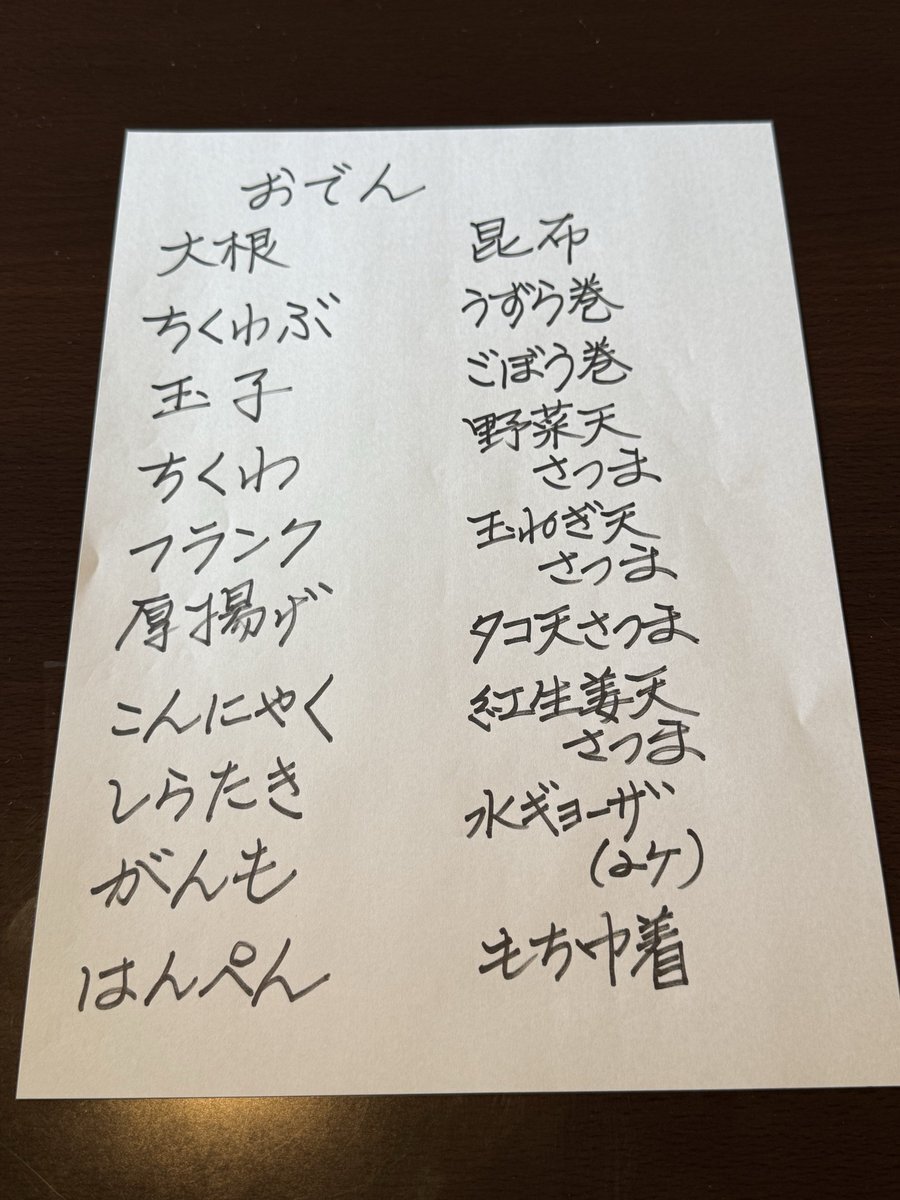 おでん
大根
ちくわぶ
玉子
ちくわ
フランク
厚揚げ
こんにゃく
しらたき
がんも
はんぺん
昆布
うずら巻
ごぼう巻
野菜天
さつま
玉ねぎ天
さつま
タコ天さつま
紅生姜天
さつま
水ギョーザ
(2ケ)
もち巾着